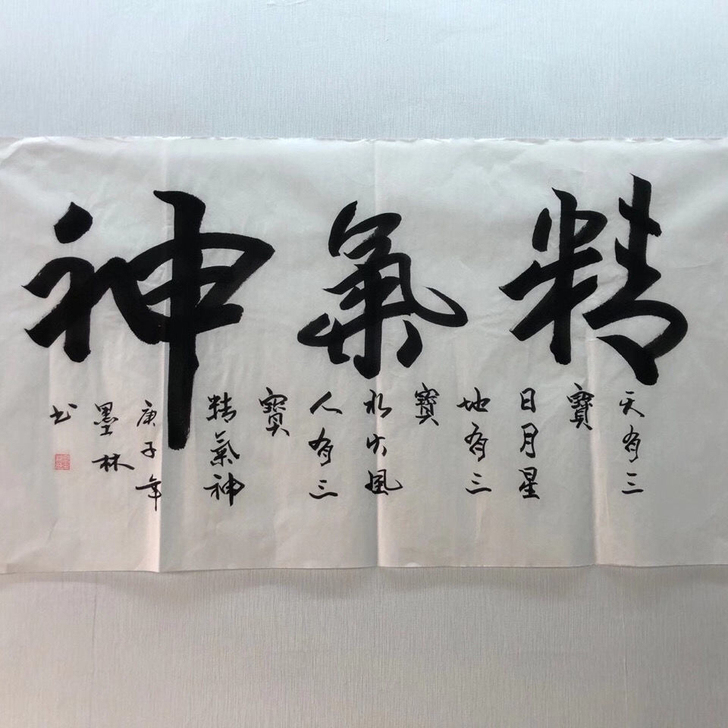 精氣神
天有三
寶
日月星
地有三
寶
水火風
人有三
寶
精氣神
庚子年
墨林
书